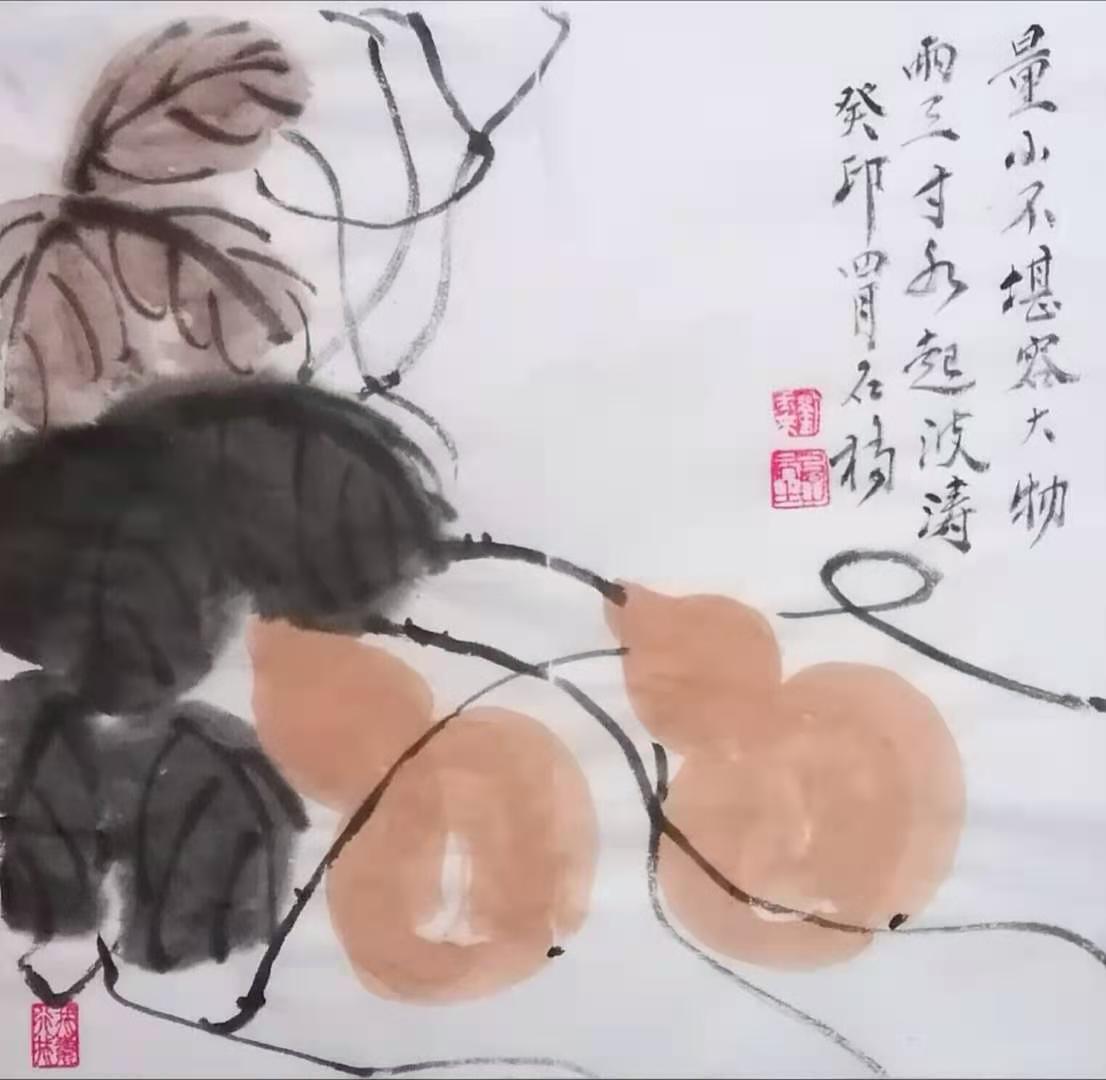 量小不堪容大物
兩三寸水起波涛
癸卯四月石